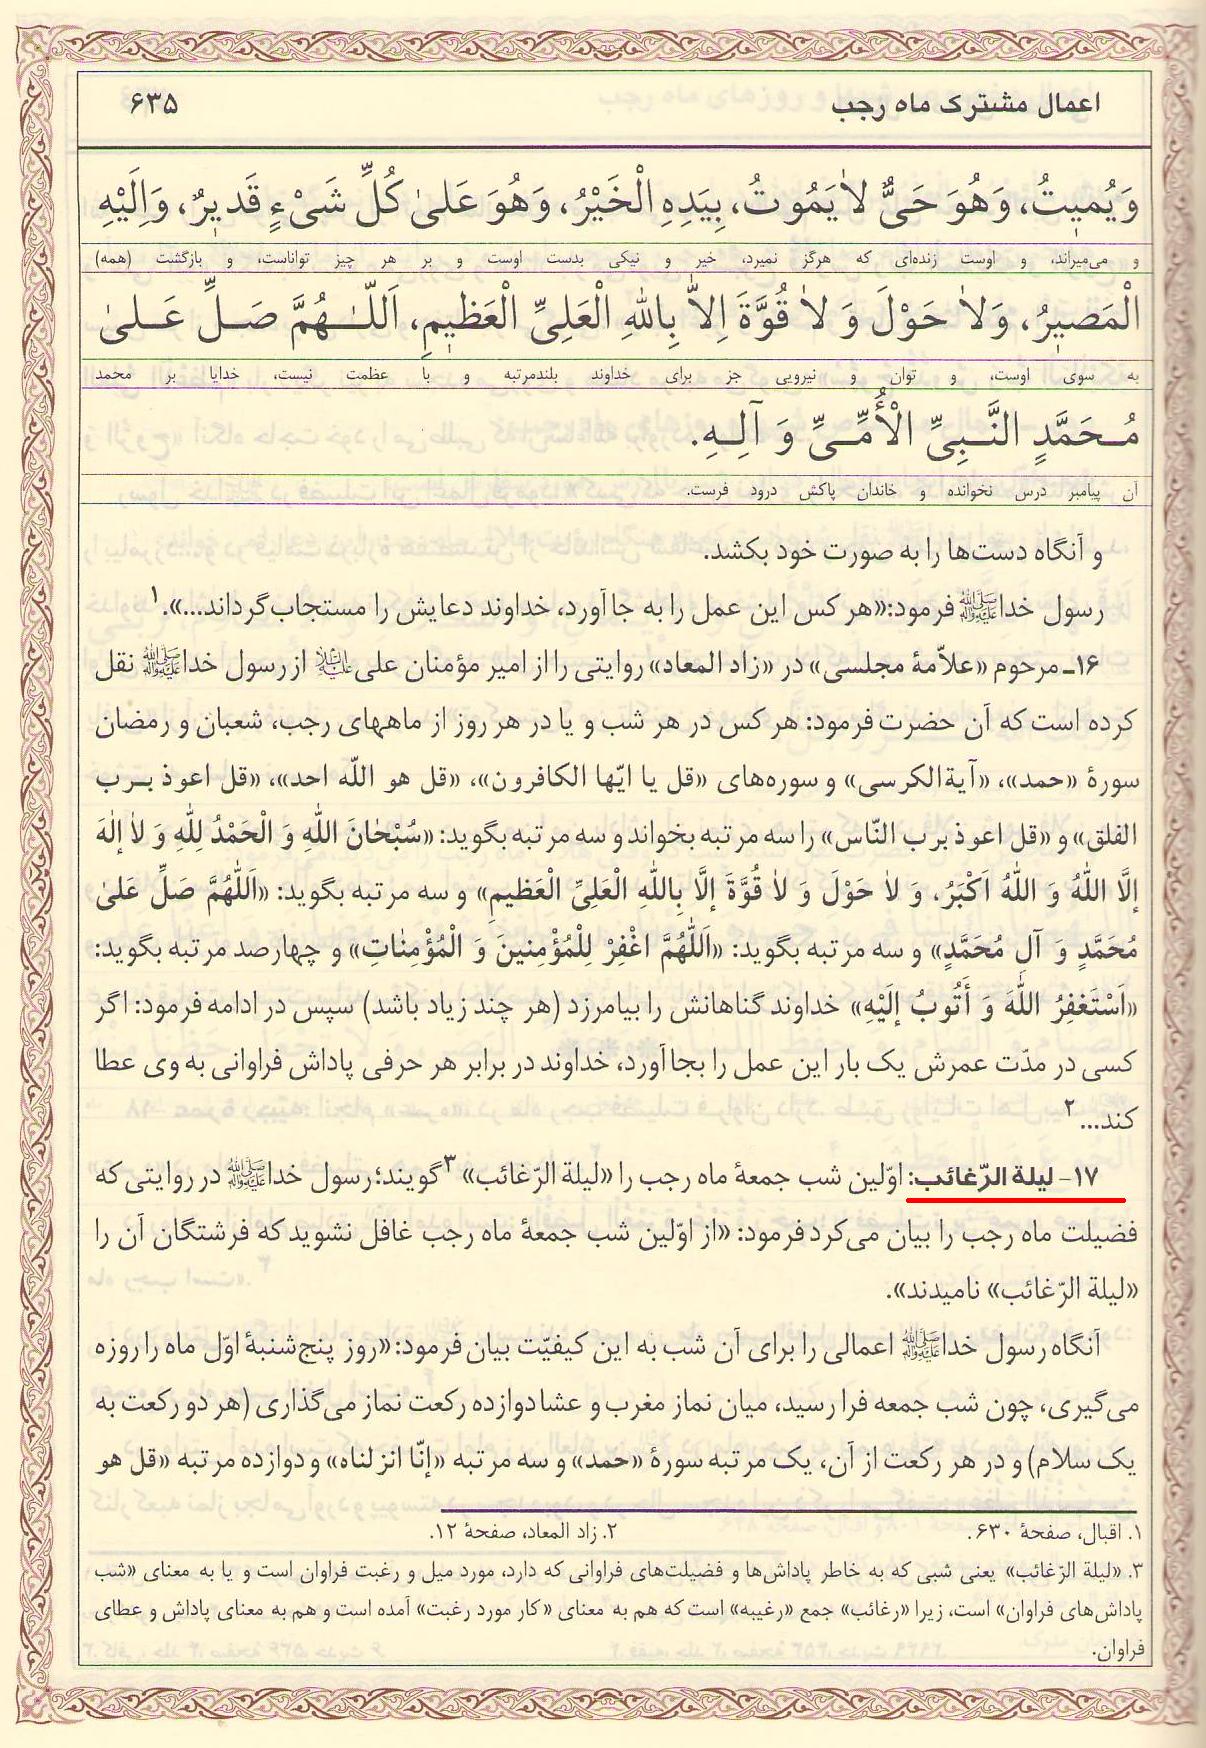 اعمال مشترک ماه رجب
۶۳۵
وَ يُمٖيتُ، وَهُوَ حَىٌّ لاٰ يَمُوتُ، بِيَدِهِ الْخَيْرُ، وَهُوَ عَلىٰ كُلِّ شَىْءٍ قَدٖيرٌ، وَاِلَيْهِ
و می‌میراند، و اوست زنده‌ای که هرگز نمیرد، خیر و نیکی بدست اوست و بر هر چیز تواناست، و بازگشت (همه)
الْمَصٖيرُ، وَلاٰ حَوْلَ وَ لاٰ قُوَّةَ اِلاّٰ بِاللّٰهِ الْعَلِىِّ الْعَظٖيمِ، اَللّٰهُمَّ صَلِّ عَلىٰ
به سوی اوست، و توان و نیرویی جز برای خداوند بلندمرتبه و با عظمت نیست، خدایا بر محمد
مُحَمَّدٍ النَّبِىِّ الْأُمِّىِّ وَ آلِهِ.
آن پیامبر درس نخوانده و خاندان پاکش درود فرست.
و آنگاه دست‌ها را به صورت خود بکشد.
رسول خداﷺ فرمود:«هر کس این عمل را به جا آورد، خداوند دعایش را مستجاب گرداند...».۱
۱۶ـ مرحوم «علاّمهٔ مجلسی» در «زاد المعاد» روایتی را از امیر مؤمنان علی علیه‌السلام از رسول خداﷺ نقل
کرده است که آن حضرت فرمود: هر کس در هر شب و یا در هر روز از ماههای رجب، شعبان و رمضان
سورهٔ «حمد»، «آیةالکرسی» و سوره‌های «قل یا ایّها الکافرون»، «قل هو اللّه احد»، «قل اعوذ بـرب
الفلق» و «قل اعوذ برب النّاس» را سه مرتبه بخواند و سه مرتبه بگوید: «سُبْحٰانَ اللّٰهِ وَ الْحَمْدُ لِلّٰهِ وَ لاٰ إِلٰهَ
إلَّا اللّٰهُ وَ اللّٰهُ اَكْبَرُ، وَ لاٰ حَوْلَ وَ لاٰ قُوَّةَ إلَّا بِاللّٰهِ الْعَلِىِّ الْعَظيمِ» و سه مرتبه بگوید: «اَللّٰهُمَّ صَلِّ عَلىٰ
مُحَمَّدٍ وَ آلِ مُحَمَّدٍ» و سه مرتبه بگوید: «اَللّٰهُمَّ اغْفِرْ لِلْمُؤْمِنينَ وَ الْمُؤْمِنٰاتِ» و چهارصد مرتبه بگوید:
«اَسْتَغْفِرُ اللّٰهَ وَ أَتُوبُ إلَيْهِ» خداوند گناهانش را بیامرزد (هر چند زیاد باشد) سپس در ادامه فرمود: اگر
کسی در مدّت عمرش یک بار این عمل را بجا آورد، خداوند در برابر هر حرفی پاداش فراوانی به وی عطا
کند...۲
۱۷- لیلة الرّغائب: اوّلین شب جمعهٔ ماه رجب را «لیلة الرّغائب»۳ گویند؛ رسول خداﷺ در روایتی که
فضیلت ماه رجب را بیان می‌کرد فرمود: «از اوّلین شب جمعهٔ ماه رجب غافل نشوید که فرشتگان آن را
«لیلة الرّغائب» نامیدند».
آنگاه رسول خداﷺ اعمالی را برای آن شب به این کیفیّت بیان فرمود: «روز پنج‌شنبهٔ اوّل ماه را روزه
می‌گیری، چون شب جمعه فرا رسید، میان نماز مغرب و عشا دوازده رکعت نماز می‌گذاری (هر دو رکعت به
یک سلام) و در هر رکعت از آن، یک مرتبه سورهٔ «حمد» و سه مرتبه «إنّا انزلناه» و دوازده مرتبه «قل هو
۱. اقبال، صفحهٔ ۶۳۰.
۲. زاد المعاد، صفحهٔ ۱۲.
۳. «لیلة الرّغائب» یعنی شبی که به خاطر پاداش‌ها و فضیلت‌های فراوانی که دارد، مورد میل و رغبت فراوان است و یا به معنای «شب
پاداش‌های فراوان» است، زیرا «رغائب» جمع «رغیبه» است که هم به معنای «کار مورد رغبت» آمده است و هم به معنای پاداش و عطای
فراوان.